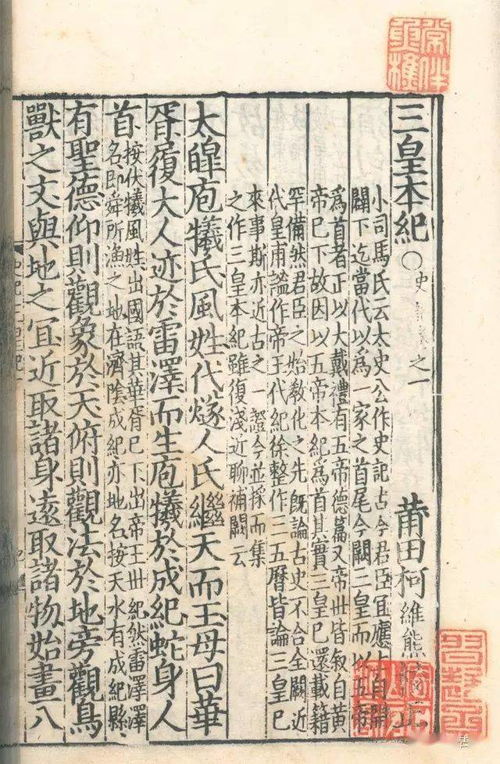 三皇本紀〇史 之一 莆田柯維熊
小司馬氏云太史公作史記古今君臣宜應上自開
闢下迄當代以為一家之首尾今闕三皇而以五帝
為首者正以大戴禮有五帝德篇又帝世皆叙自黃
帝已下故因以五帝本紀為首其實三皇已還載籍
罕備然君臣之始教化之先旣論古史不合全闕近
代皇甫謐作帝王代紀徐整作三五曆皆論三皇已
來事斯亦近古之一證今並採而集
之作三皇本紀雖復淺近聊補闕云
太皥庖犧氏風姓代燧人氏繼天而王母曰華
胥履大人迹於雷澤而生庖犧於成紀蛇身人
首按伏犧風姓出國語其華胥已下出帝王世紀然雷澤澤
名即舜所漁之地在濟陰成紀亦地名按天水有成紀縣
有聖德仰則觀象於天俯則觀法於地旁觀鳥
獸之文與地之宜近取諸身遠取諸物始畫八